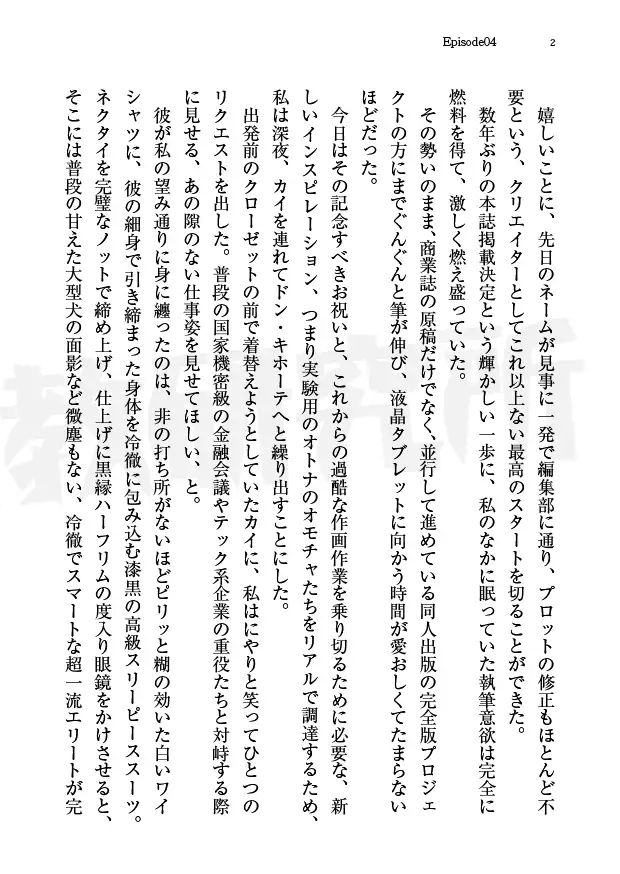 Episode04
2
嬉しいことに、先日のネームが見事に一発で編集部に通り、プロットの修正もほとんど不
要という、クリエイターとしてこれ以上ない最高のスタートを切ることができた。
数年ぶりの本誌掲載決定という輝かしい一歩に、私のなかに眠っていた執筆意欲は完全に
燃料を得て、激しく燃え盛っていた。
その勢いのまま、商業誌の原稿だけでなく、並行して進めている同人出版の完全版プロジェ
クトの方にまでぐんぐんと筆が伸び、液晶タブレットに向かう時間が愛おしくてたまらない
ほどだった。
今日はその記念すべきお祝いと、これからの過酷な作画作業を乗り切るために必要な、新
しいインスピレーション、つまり実験用のオトナのオモチャたちをリアルで調達するため、
私は深夜、カイを連れてドン・キホーテへと繰り出すことにした。
出発前のクローゼットの前で着替えようとしていたカイに、私はにやりと笑ってひとつの
リクエストを出した。普段の国家機密級の金融会議やテック系企業の重役たちと対峙する際
に見せる、あの隙のない仕事姿を見せてほしい、と。
彼が私の望み通りに身に纏ったのは、非の打ち所がないほどピリッと糊の効いた白いワイ
シャツに、彼の細身で引き締まった身体を冷徹に包み込む漆黒の高級スリーピーススーツ。
ネクタイを完璧なノットで締め上げ、仕上げに黒縁ハーフリムの度入り眼鏡をかけさせると、
そこには普段の甘えた大型犬の面影など微塵もない、冷徹でスマートな超一流エリートが完